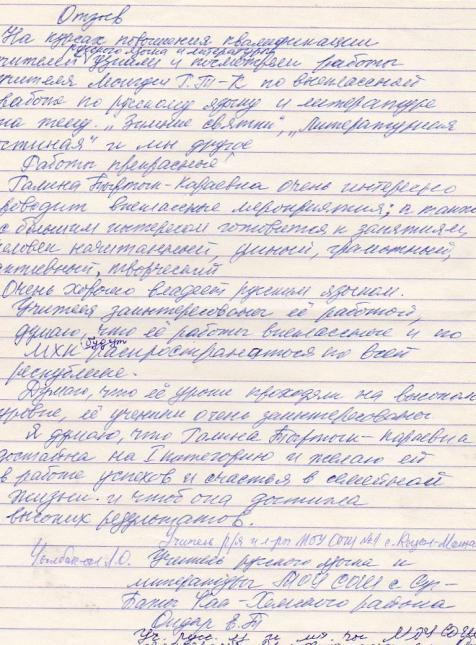 Отзыв
На курсах повышения квалификации
русского языка и литературы
чителей узнали и посмотрели работы
чителя Монгуш Г.Т-К по внеклассной
работе по русскому языку и литературе
на тему „Зимние святки", „Литературная
стиная" и мн другое
Работы прекрасные!
Галина Тыртык-Караевна очень интересно
роводит внеклассные мероприятия; а также
с большим интересом готовится к занятиям,
человек начитанный умный, грамотный,
активный, творческий
Очень хорошо владеет русским языком.
Учителя заинтересованы её работой,
думаю, что её работы внеклассные и по
МХК будут распространяться по всей
республике.
Думаю, что её уроки проходят на высоком
уровне, её ученики очень заинтересованы
Я думаю, что Галина Тыртык-Караевна
достойна на I категорию и желаю ей
в работе успехов и счастья в семейной
жизни. и чтоб она достигла
высоких результатов.
Учитель р/я и л-ры МОУ СОШ №1 с.
Л.О. Учитель русского языка и
литературы МОУ СОШ с Суг-
Бажы Каа-Хемского района
Ондар В.Т
Уч. рус. МОУ СОШ